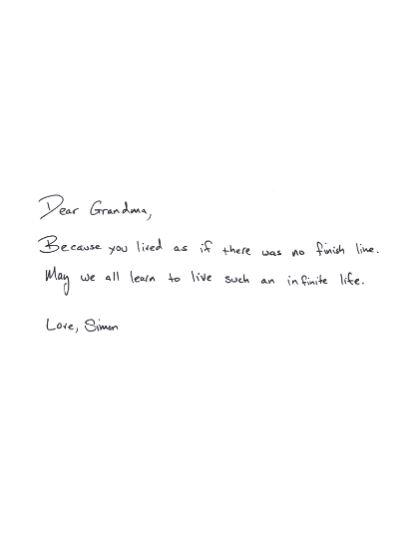 Dear Grandma,
Because you lived as if there was no finish line.
May we all learn to live such an infinite life.
Love, Simon